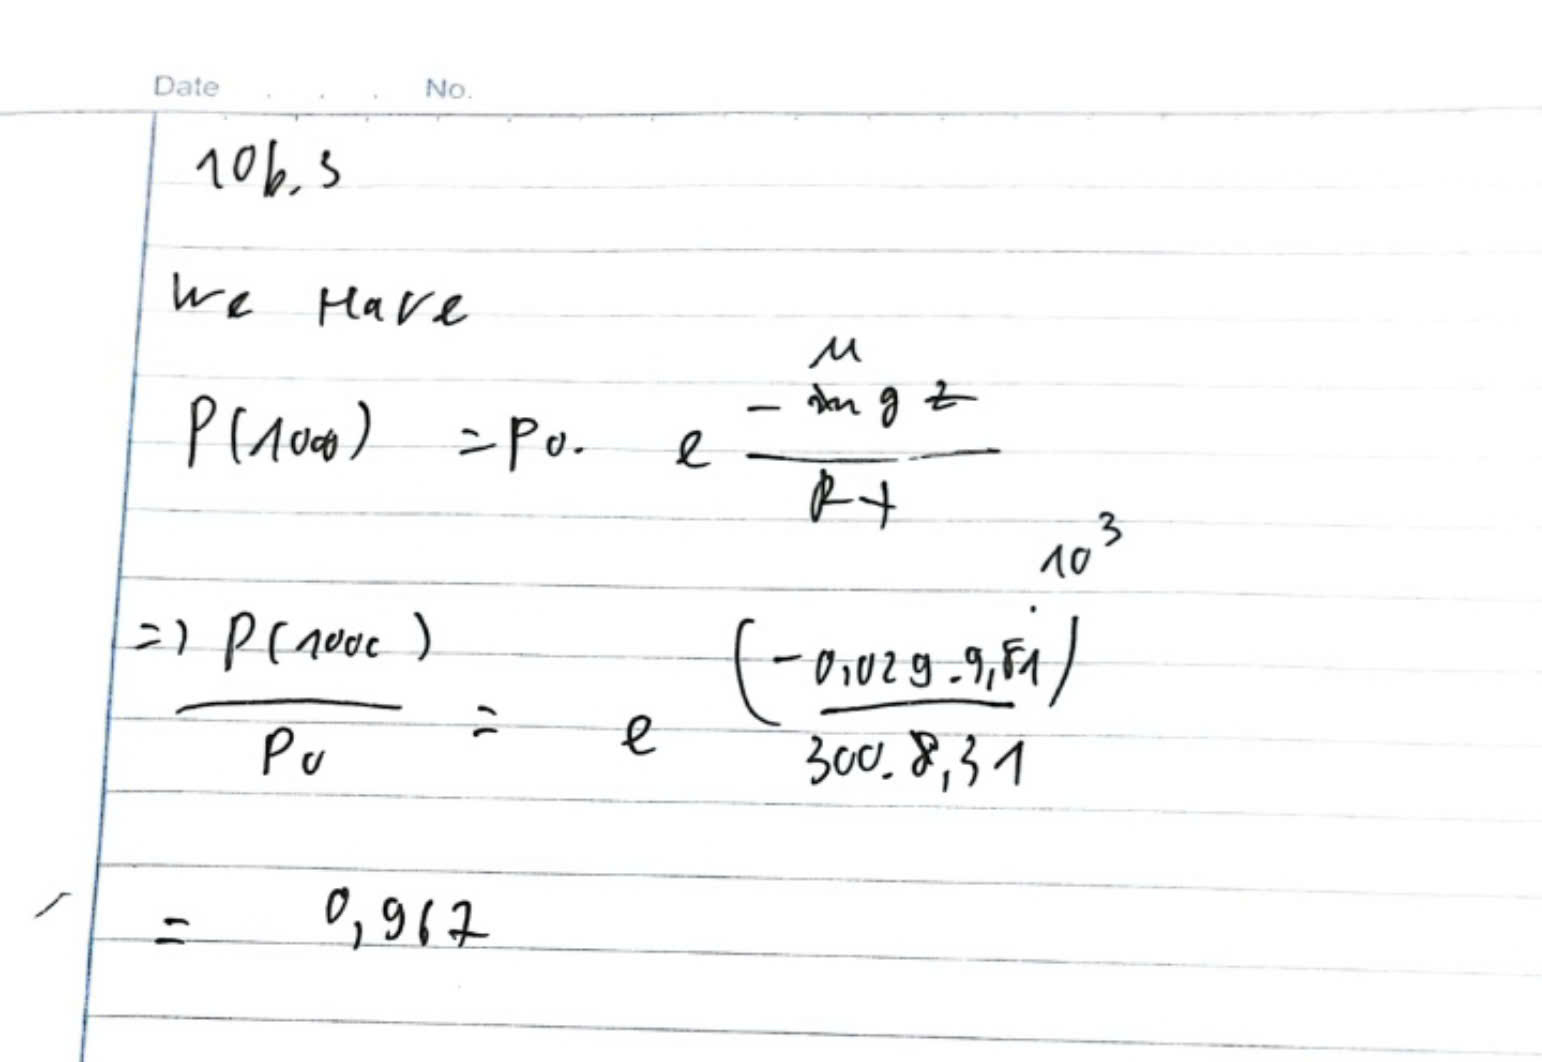 Date . . . No.
106.3
We Have
P(1000) = P0. e^(-Mgz / Rt)
=> P(1000) / P0 = e^((-0,029.9,81.10^3) / 300.8,31)
= 0,967